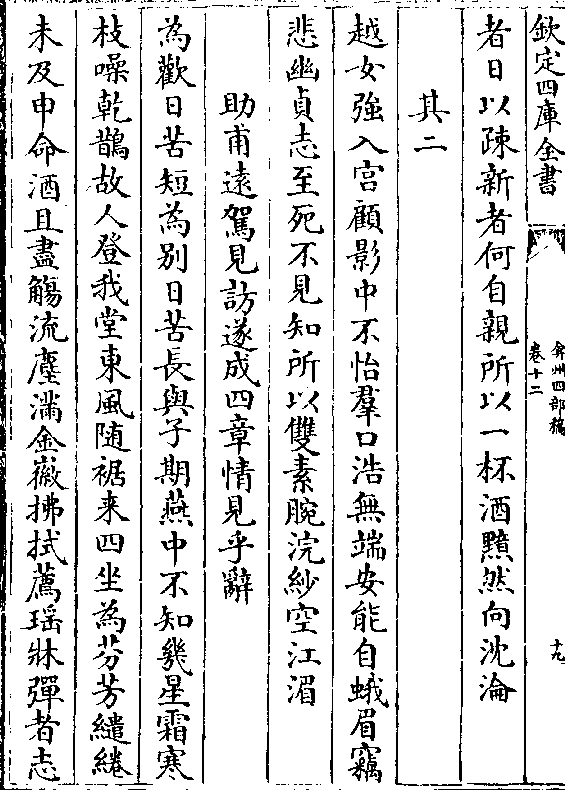 欽定四庫全書
弇州四部稿
卷十二
十九
者日以疎新者何自親所以一杯酒黯然向沈淪
其二
越女強入宫顧影中不怡羣口浩無端安能自蛾眉竊
悲幽貞志至死不見知所以雙素腕浣紗空江湄
助甫遠駕見訪遂成四章情見乎辭
為歡日苦短為别日苦長與子期燕中不知幾星霜寒
枝噪乾鵲故人登我堂東風随裾来四坐為芬芳繾綣
未及申命酒且盡觴流塵滿金徽拂拭薦瑶牀彈者志